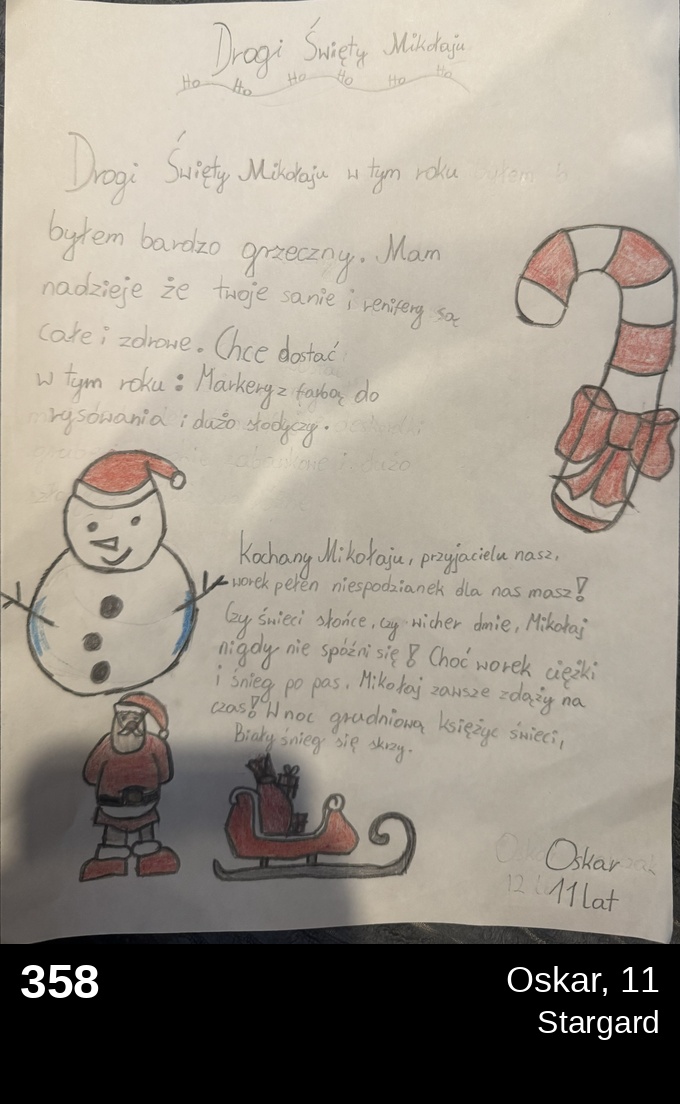 Drogi Święty Mikołaju
Ho Ho Ho Ho Ho Ho
Drogi Święty Mikołaju w tym roku
byłem bardzo grzeczny. Mam
nadzieje że twoje sanie i renifery są
całe i zdrowe. Chce dostać
w tym roku: Markery z farbą do
rysowania i dużo słodyczy.
Kochany Mikołaju, przyjacielu nasz,
worek pełen niespodzianek dla nas masz!
Czy świeci słońce, czy wicher dmie, Mikołaj
nigdy nie spóźni się! Choć worek ciężki
i śnieg po pas. Mikołaj zawsze zdąży na
czas! W noc grudniową księżyc świeci,
Biały śnieg się skrzy.
Oskar
11 lat
358
Oskar, 11
Stargard